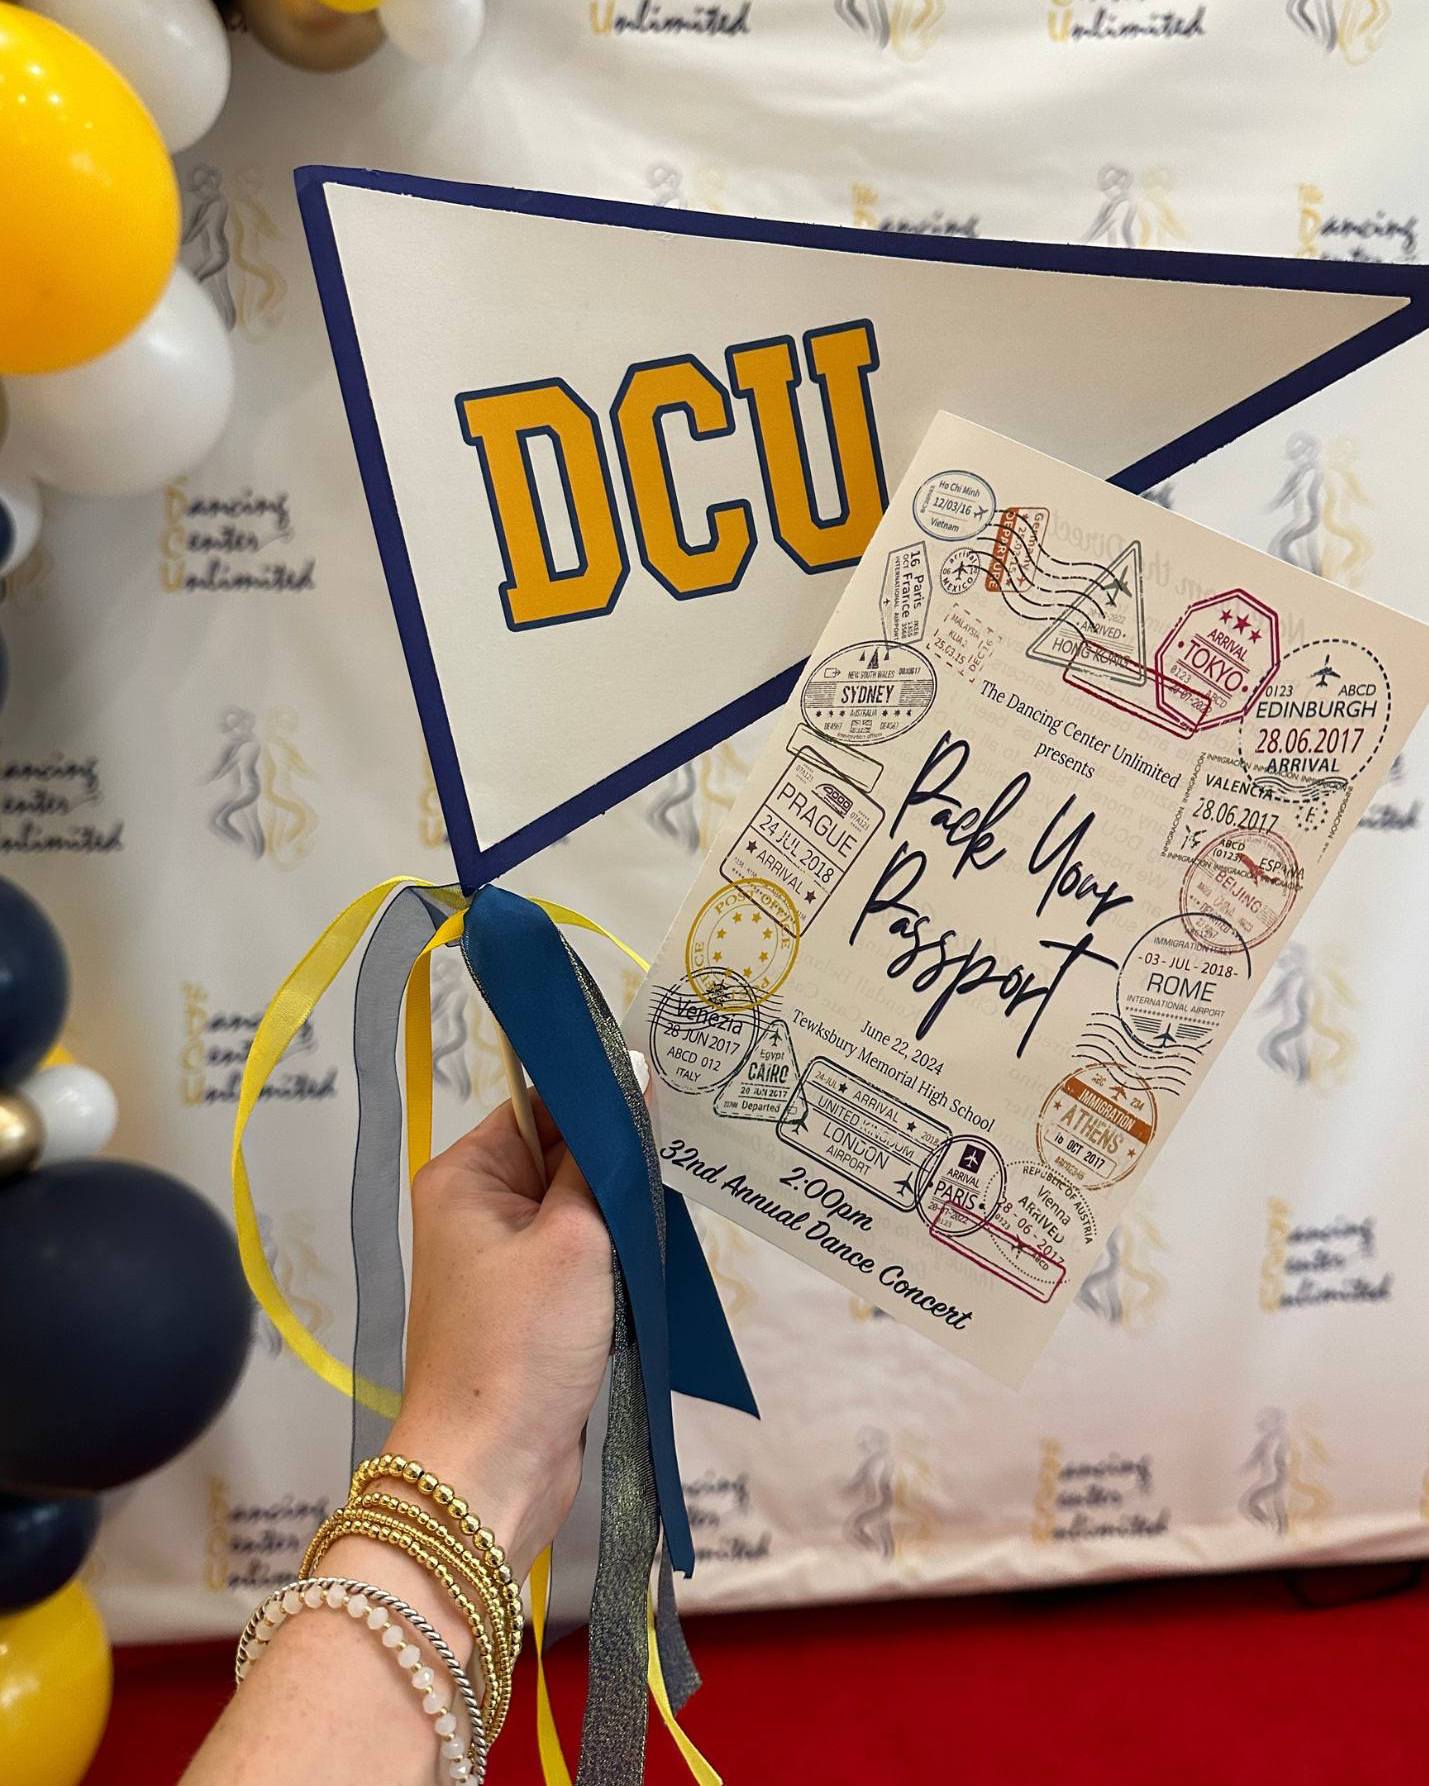 Unlimited
Unlimited
The
Dancing
Center
Unlimited
DCU
Ho Chi Minh
12/03/16
Vietnam
Germany
DEPARTURE
arrival
MEXICO
16 Paris
OCT France
INTERNATIONAL AIRPORT
MALAYSIA
KLIA 2
25.03.15
ARRIVED
HONG KONG
ARRIVAL
TOKYO
0123 ABCD
0123 ABCD
EDINBURGH
28.06.2017
ARRIVAL
NEW SOUTH WALES
SYDNEY
AUSTRALIA
The Dancing Center Unlimited
presents
Pack Your
Passport
June 22, 2024
Tewksbury Memorial High School
2:00pm
32nd Annual Dance Concert
PRAGUE
24 JUL 2018
ARRIVAL
VALENCIA
28.06.2017
ABCD
(0123)
ESPAÑA
BEIJING
POST OFFICE
IMMIGRATION ITALY
-03-JUL-2018-
ROME
INTERNATIONAL AIRPORT
Venezia
28 JUN 2017
ABCD 012
ITALY
Egypt
CAIRO
20 JUN 2017
Departed
24-JUL ARRIVAL 2018
UNITED KINGDOM
LONDON
AIRPORT
IMMIGRATION
ATHENS
16 OCT 2017
ARRIVAL
PARIS
REPUBLIC OF AUSTRIA
Vienna
ARRIVED
28-06-2017
ABCD
Dancing
Center
Unlimited
Dancing
Center
Unlimited